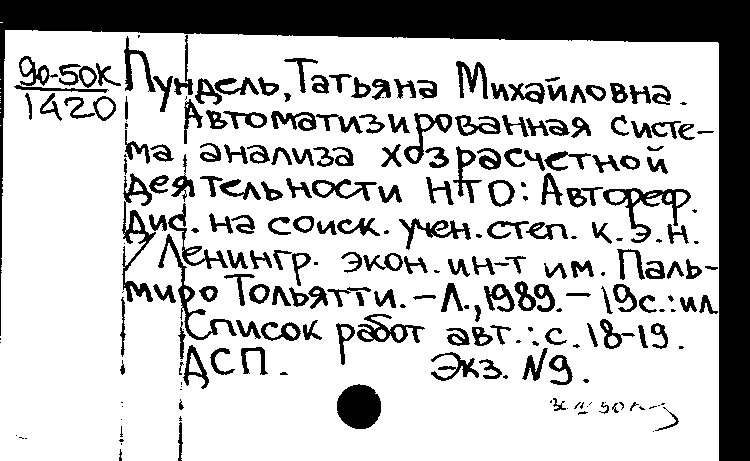 90-50К
1420
Пундель, Татьяна Михайловна.
Автоматизированная систе-
ма анализа хозрасчетной
деятельности НТО: Автореф.
Дис. на соиск. учен. степ. к.э.н.
/Ленингр. экон. ин-т им. Паль-
миро Тольятти. - Л., 1989. - 19с.: ил.
Список работ авт.: с. 18-19.
ДСП. Экз. №9.